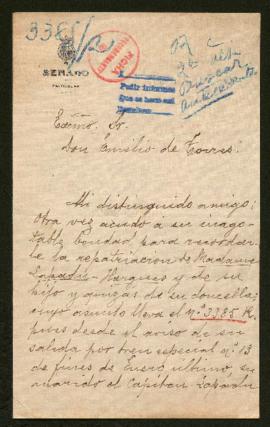 3385/2
SENADO
PARTICULAR
FICHA
Pedir informes
Excmo. Sr.
Don Emilio de Torres:
Mi distinguido amigo:
Otra vez acudo a su inago-
table bondad, para recordar-
le la repatriación de Madame
Marques y de su
hijo y quizás de su doncella;
cuyo asunto lleva el nº 3385 R.
pues desde el aviso de su
salida por tren especial nº 13
de fines de Enero último, su
marido el Capitan